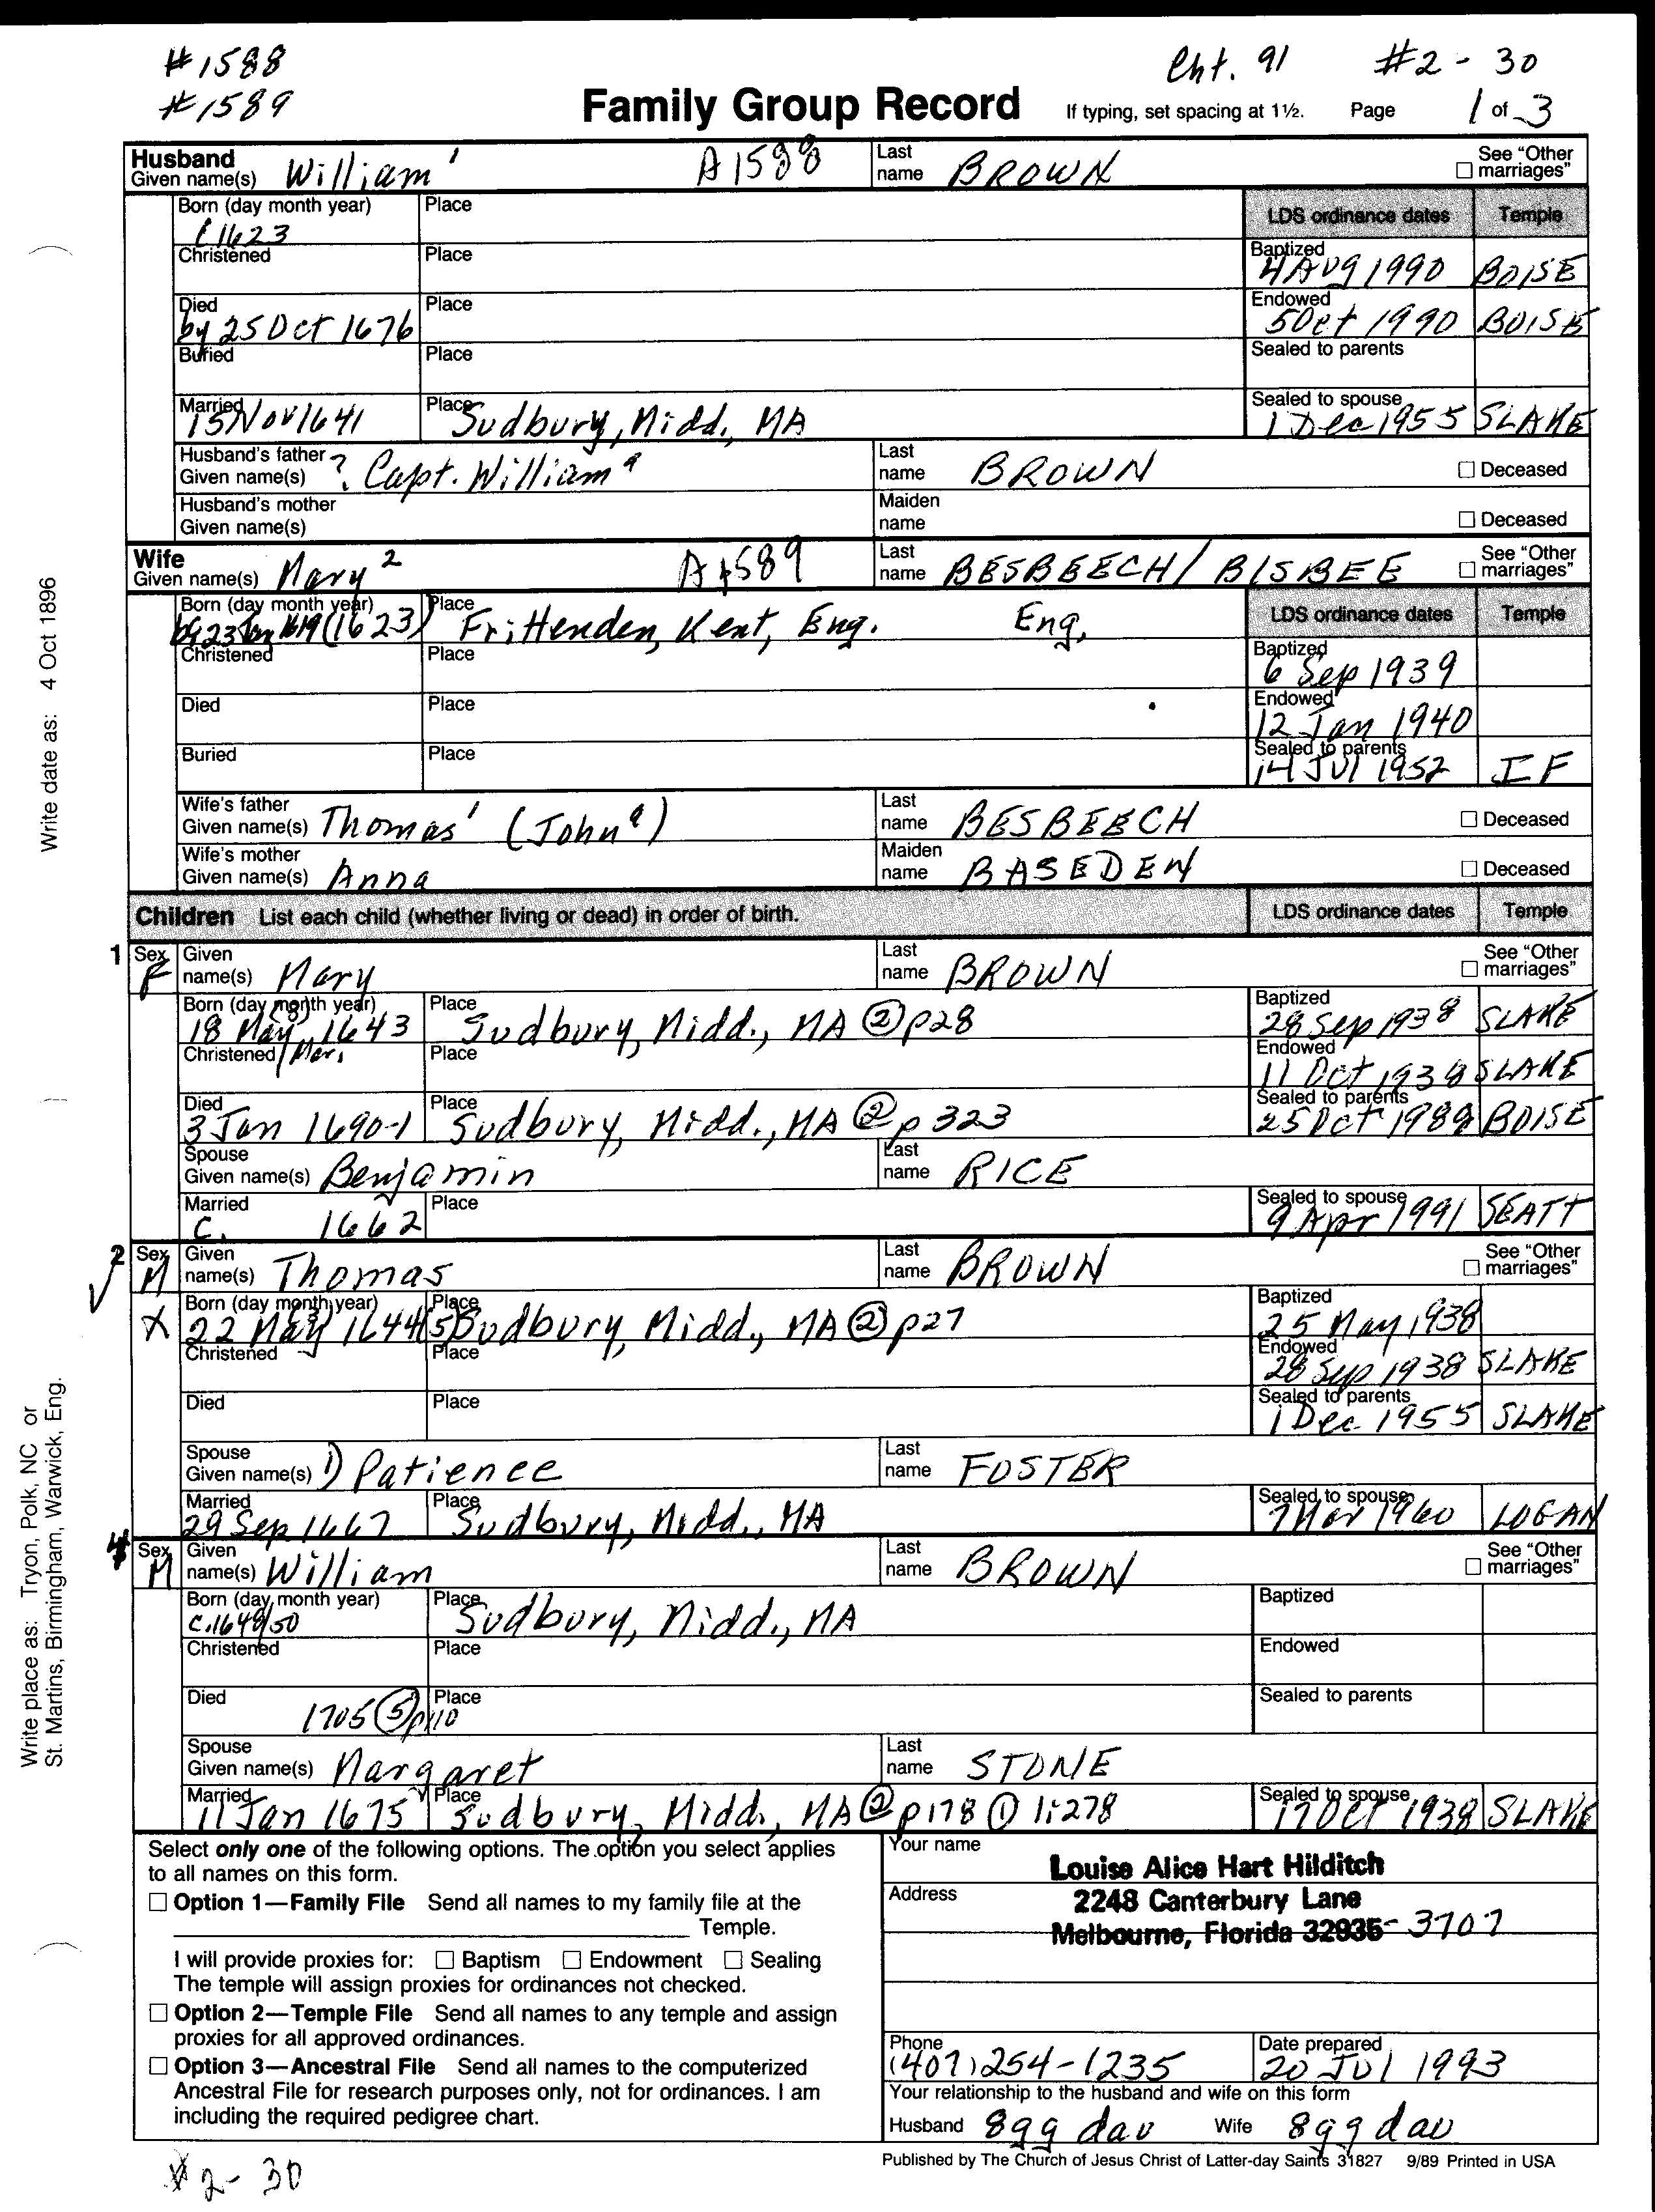 #1588 Cht. 91 #2-30
#1589 Family Group Record If typing, set spacing at 1½. Page 1 of 3
Husband
Given name(s) William¹ A1588 Last name BROWN ☐ See "Other marriages"
Born (day month year) c1623 Place LDS ordinance dates Temple
Christened Place Baptized 4 Aug 1990 BOISE
Died by 25 Oct 1676 Place Endowed 5 Oct 1990 BOISE
Buried Place Sealed to parents
Married 15 Nov 1641 Place Sudbury, Midd, MA Sealed to spouse 1 Dec 1955 SLAKE
Husband's father Given name(s) ? Capt. William ª Last name BROWN ☐ Deceased
Husband's mother Given name(s) Maiden name ☐ Deceased
Wife
Given name(s) Mary² A1589 Last name BESBEECH/BISBEE ☐ See "Other marriages"
Born (day month year) by 23 1619 (1623) Place Frittenden, Kent, Eng. Eng, LDS ordinance dates Temple
Christened Place Baptized 6 Sep 1939
Died Place Endowed 12 Jan 1940
Buried Place Sealed to parents 14 Jul 1952 IF
Wife's father Given name(s) Thomas¹ (John ª) Last name BESBEECH ☐ Deceased
Wife's mother Given name(s) Anna Maiden name BASEDEN ☐ Deceased
Children List each child (whether living or dead) in order of birth. LDS ordinance dates Temple
1 Sex F Given name(s) Mary Last name BROWN ☐ See "Other marriages"
Born (day month year) 18 May (8) 1643 / Mar. Place Sudbury, Midd., MA ② p28 Baptized 28 Sep 1938 SLAKE
Christened Place Endowed 11 Oct 1938 SLAKE
Died 3 Jan 1690-1 Place Sudbury, Midd., MA ② p 323 Sealed to parents 25 Oct 1989 BOISE
Spouse Given name(s) Benjamin Last name RICE
Married c. 1662 Place Sealed to spouse 9 Apr 1991 SEATT
2 Sex M Given name(s) Thomas Last name BROWN ☐ See "Other marriages"
X Born (day month year) 22 May (3) 1644(5) Place Sudbury, Midd, MA ② p27 Baptized 25 May 1938
Christened Place Endowed 28 Sep 1938 SLAKE
Died Place Sealed to parents 1 Dec 1955 SLAKE
Spouse Given name(s) 1) Patience Last name FOSTER
Married 29 Sep 1667 Place Sudbury, Midd., MA Sealed to spouse 7 Mar 1960 LOGAN
4 Sex M Given name(s) William Last name BROWN ☐ See "Other marriages"
Born (day month year) c.1649/50 Place Sudbury, Midd., MA Baptized
Christened Place Endowed
Died 1705 ⑤ p110 Place Sealed to parents
Spouse Given name(s) Margaret Last name STONE
Married 11 Jan 1675 Place Sudbury, Midd., MA ② p178 ① 1:278 Sealed to spouse 17 Oct 1938 SLAKE
Select only one of the following options. The option you select applies
to all names on this form.
☐ Option 1—Family File Send all names to my family file at the
Temple.
I will provide proxies for: ☐ Baptism ☐ Endowment ☐ Sealing
The temple will assign proxies for ordinances not checked.
☐ Option 2—Temple File Send all names to any temple and assign
proxies for all approved ordinances.
☐ Option 3—Ancestral File Send all names to the computerized
Ancestral File for research purposes only, not for ordinances. I am
including the required pedigree chart.
Your name Louise Alice Hart Hilditch
Address 2248 Canterbury Lane
Melbourne, Florida 32935-3707
Phone (407) 254-1235 Date prepared 20 Jul 1993
Your relationship to the husband and wife on this form
Husband 8gg dau Wife 8gg dau
Published by The Church of Jesus Christ of Latter-day Saints 31827 9/89 Printed in USA
#2-30
Write date as: 4 Oct 1896
Write place as: Tryon, Polk, NC or
St. Martins, Birmingham, Warwick, Eng.